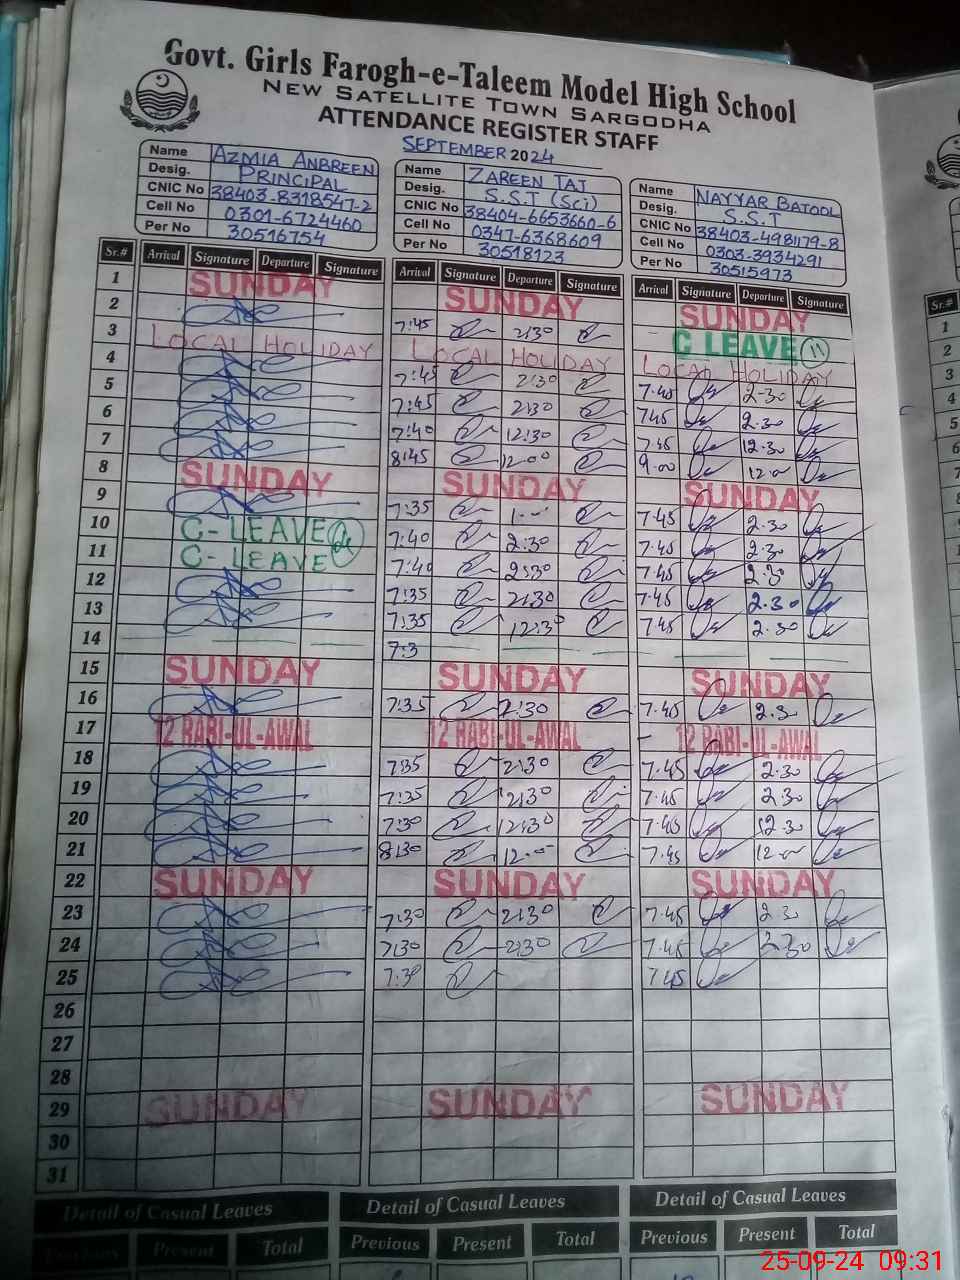 Govt. Girls Farogh-e-Taleem Model High School
NEW SATELLITE TOWN SARGODHA
ATTENDANCE REGISTER STAFF
SEPTEMBER 2024
Name AZMIA ANBREEN
Desig. PRINCIPAL
CNIC No 38403-8318547-2
Cell No 0301-6724460
Per No 30516754
Name ZAREEN TAJ
Desig. S.S.T (Sci)
CNIC No 38404-6653660-6
Cell No 0347-6368609
Per No 30518123
Name NAYYAR BATOOL
Desig. S.S.T
CNIC No 38403-4981179-8
Cell No 0303-3934291
Per No 30515973
Sr.# Arrival Signature Departure Signature Arrival Signature Departure Signature Arrival Signature Departure Signature
1 SUNDAY SUNDAY SUNDAY
2 7:45 2:30 C LEAVE 11
3 LOCAL HOLIDAY LOCAL HOLIDAY LOCAL HOLIDAY
4 7:45 2:30 7.45 2.30
5 7:45 2:30 7.45 2.30
6 7:40 12:30 7.45 12.30
7 8:45 12:00 9.00 12.00
8 SUNDAY SUNDAY SUNDAY
9 7:35 7.45 2.30
10 C-LEAVE 7:40 2:30 7.45 2.30
11 C-LEAVE 7:40 2:30 7.45 2.30
12 7:35 2:30 7.45 2.30
13 7:35 12:30 7.45 2.30
14 7:3
15 SUNDAY SUNDAY SUNDAY
16 7:35 2:30 7.45 2.30
17 12 RABI-UL-AWAL 12 RABI-UL-AWAL 12 RABI-UL-AWAL
18 7:35 2:30 7.45 2.30
19 7:35 2:30 7.45 2.30
20 7:30 12:30 7.45 12.30
21 8:30 12.00 7.45 12.00
22 SUNDAY SUNDAY SUNDAY
23 7:30 2:30 7.45 2.30
24 7:30 2:30 7.45 2.30
25 7:30 7.45
26
27
28
29 SUNDAY SUNDAY SUNDAY
30
31
Detail of Casual Leaves Detail of Casual Leaves Detail of Casual Leaves
Previous Present Total Previous Present Total Previous Present Total
Sr.#
1
2
3
4
5
6
7
8
9
25-09-24 09:31